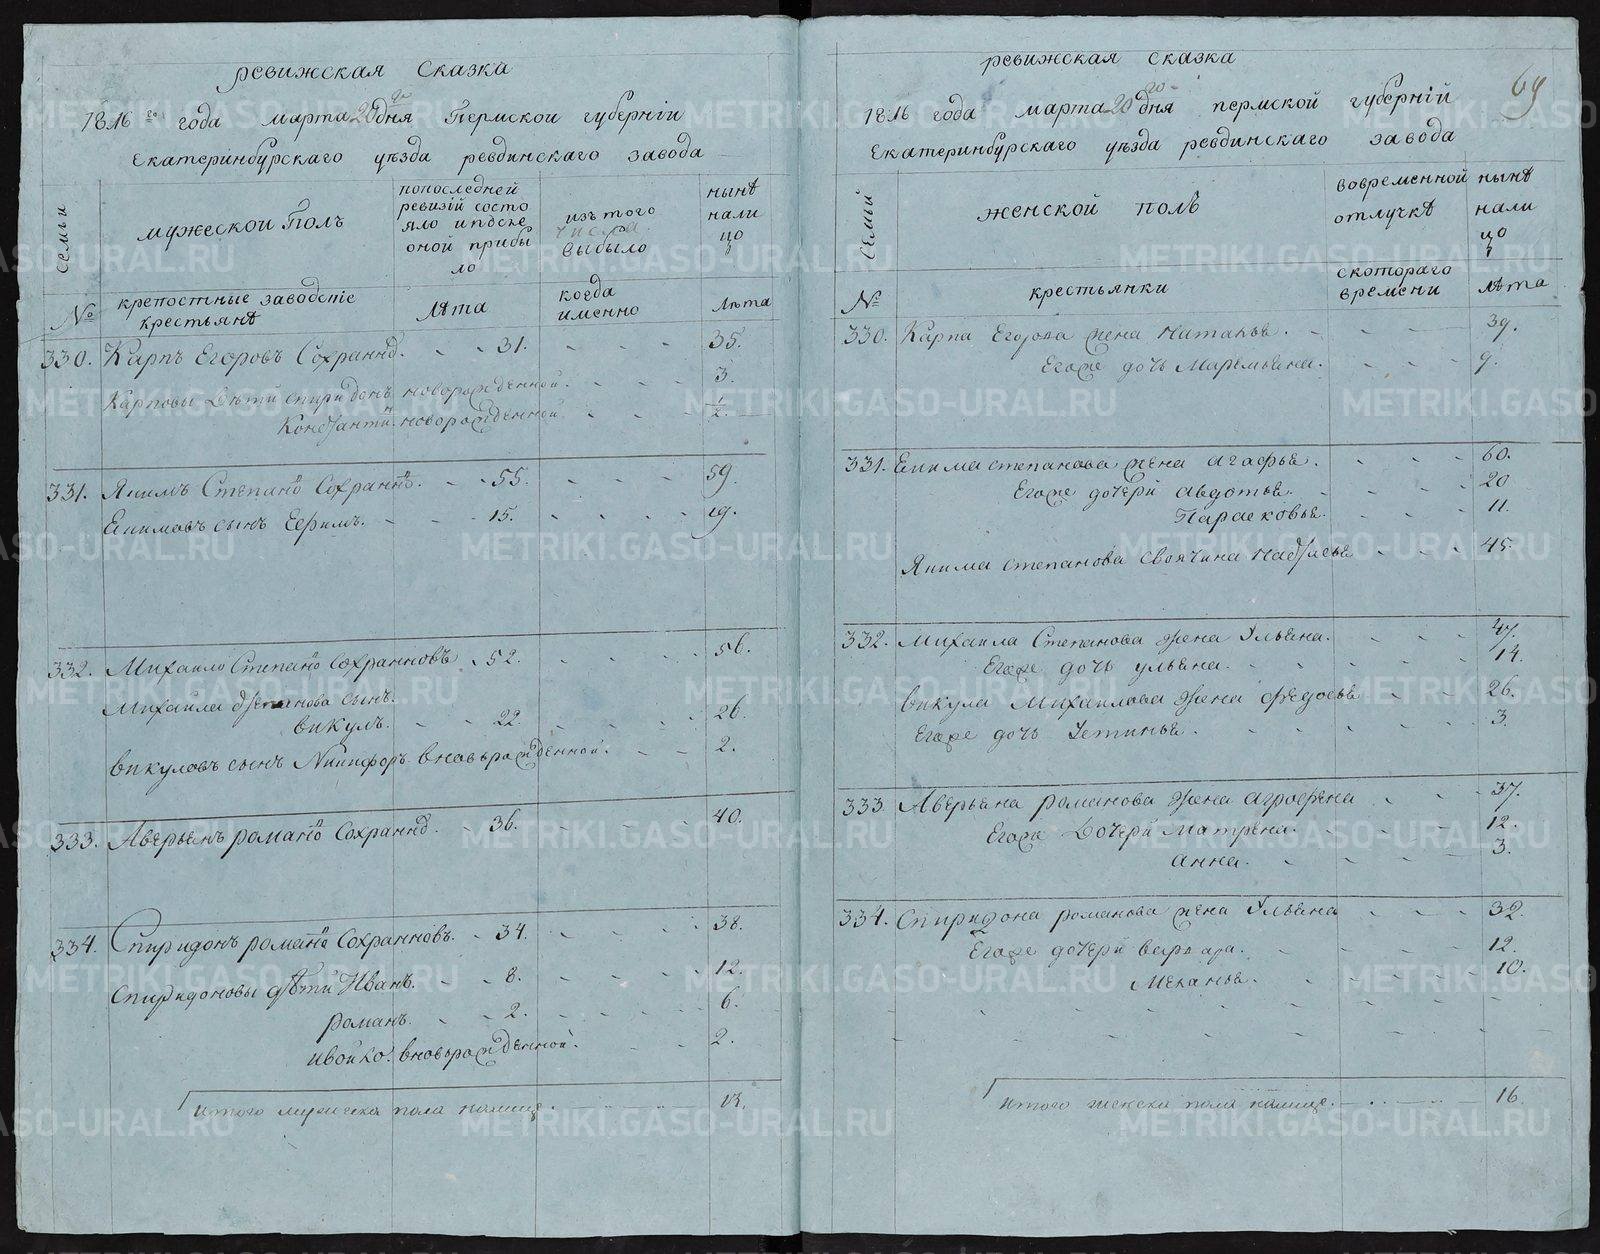 ревижская сказка
1816 го года марта 20 дня Пермской губернiи
Екатеринбурскаго уѣзда ревдинскаго завода
Семьи
мужеской Полъ
попоследней ревизiй состояло и после оной прибыло
изъ того числа выбыло
нынѣ на лицо
№
крепостные заводскiе крестьянѣ
лѣта
когда имянно
лѣта
330. Карпъ Егоровъ Сохранно. 31. 35.
Карповы Дѣти спиридонъ новорожденной. 3.
Константинъ новорожденной 1/2.
331. Якимъ Степано Сохранно. 55. 59.
Екимовъ сынъ Ефимъ. 15. 19.
332. Михаило Степано Сохранновъ 52. 56.
Михаила Степанова сынъ.
викулъ. 22. 26.
викуловъ сынъ Никифоръ вновьрожденной. 2.
333. Аверьянъ романо Сохранно. 36. 40.
334. Спиридонъ романо Сохранновъ. 34. 38.
Спиридоновы дѣти Иванъ. 8. 12.
романъ. 2. 6.
ивойко. вновьрожденной. 2.
итого мужеска пола налице. 13.
69
ревижская сказка
1816 года марта 20 го дня пермской губернiй
Екатеринбурскаго уѣзда ревдинскаго завода
Семьи
женской полъ
вовременной отлучкѣ
нынѣ на лицо
№
крестьянки
скотораго времени
лѣта
330. Карпа Егорова жена Наталья. 39.
Егоже дочь Маремьяна. 9.
331. Екима степанова жена агафья. 60.
Егоже дочери авдотья. 20
Парасковья. 11.
Якима степанова своячина настасья 45.
332. Михаила Степанова жена Ульяна. 47.
Егоже дочь ульяна. 14.
викула Михаилова жена федосья 26.
Егоже дочь Устинья. 3.
333. Аверьяна романова жена агрофена 37.
Егоже Дочери матрена. 12.
анна. 3.
334. Спиридона романова жена Ульяна 32.
Егоже дочери варвара. 12.
Меланья. 10.
итого женска пола налице. 16.
METRIKI.GASO-URAL.RU